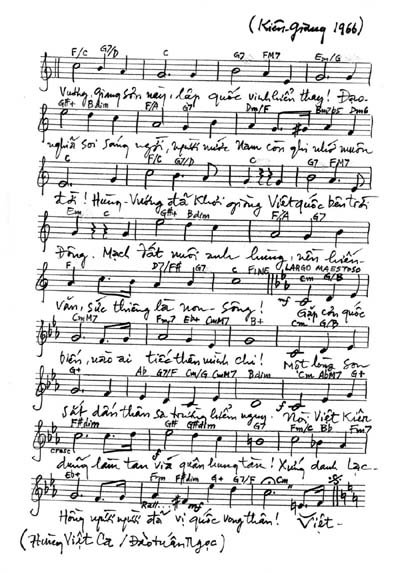 (Kiên-Giang 1966)
F/C G7/D C G7 FM7 Em/G
Vương, giang sơn này, lập quốc vinh hiển thay! Đạo-
G#+ Bdim F/A G7 Dm/F Bm7b5 Dm6
nghĩa soi sáng ngời, người nước Nam còn ghi nhớ muôn
C F/C G7/D C G7 FM7
đời! Hùng-Vương đã khơi giòng Việt quốc bên trời
Em C G#+ Bdim F/A G7
Đông. Mạch đất nuôi anh hùng, nên hiến-
F D7/F# G7 C FINE LARGO MAESTOSO
Cm G/B
văn, sức thiêng là non-sông! mf Gặp cơn quốc
CmM7 Fm7 Eb+ CmM7 B+ Cm G/B
biến, nào ai tiếc thân mình chi! Một lòng son
G+ Ab G7/F Cm/G CmM7 Bdim Cm AbM7 G+
sắt dấn thân sa trường hiểm nguy. Nòi Việt Kiêu
F#dim G# G#dim G7 Fm/C Bb Fm7
cresc dũng làm tan vía quân hung tàn! Xứng danh Lạc-
Eb+ Fm F#dim G+ G7/F Cm
Rall...
Hồng người người đã vị quốc vong thân! Việt-
(Hùng Việt Ca / Đào Tuấn Ngọc)